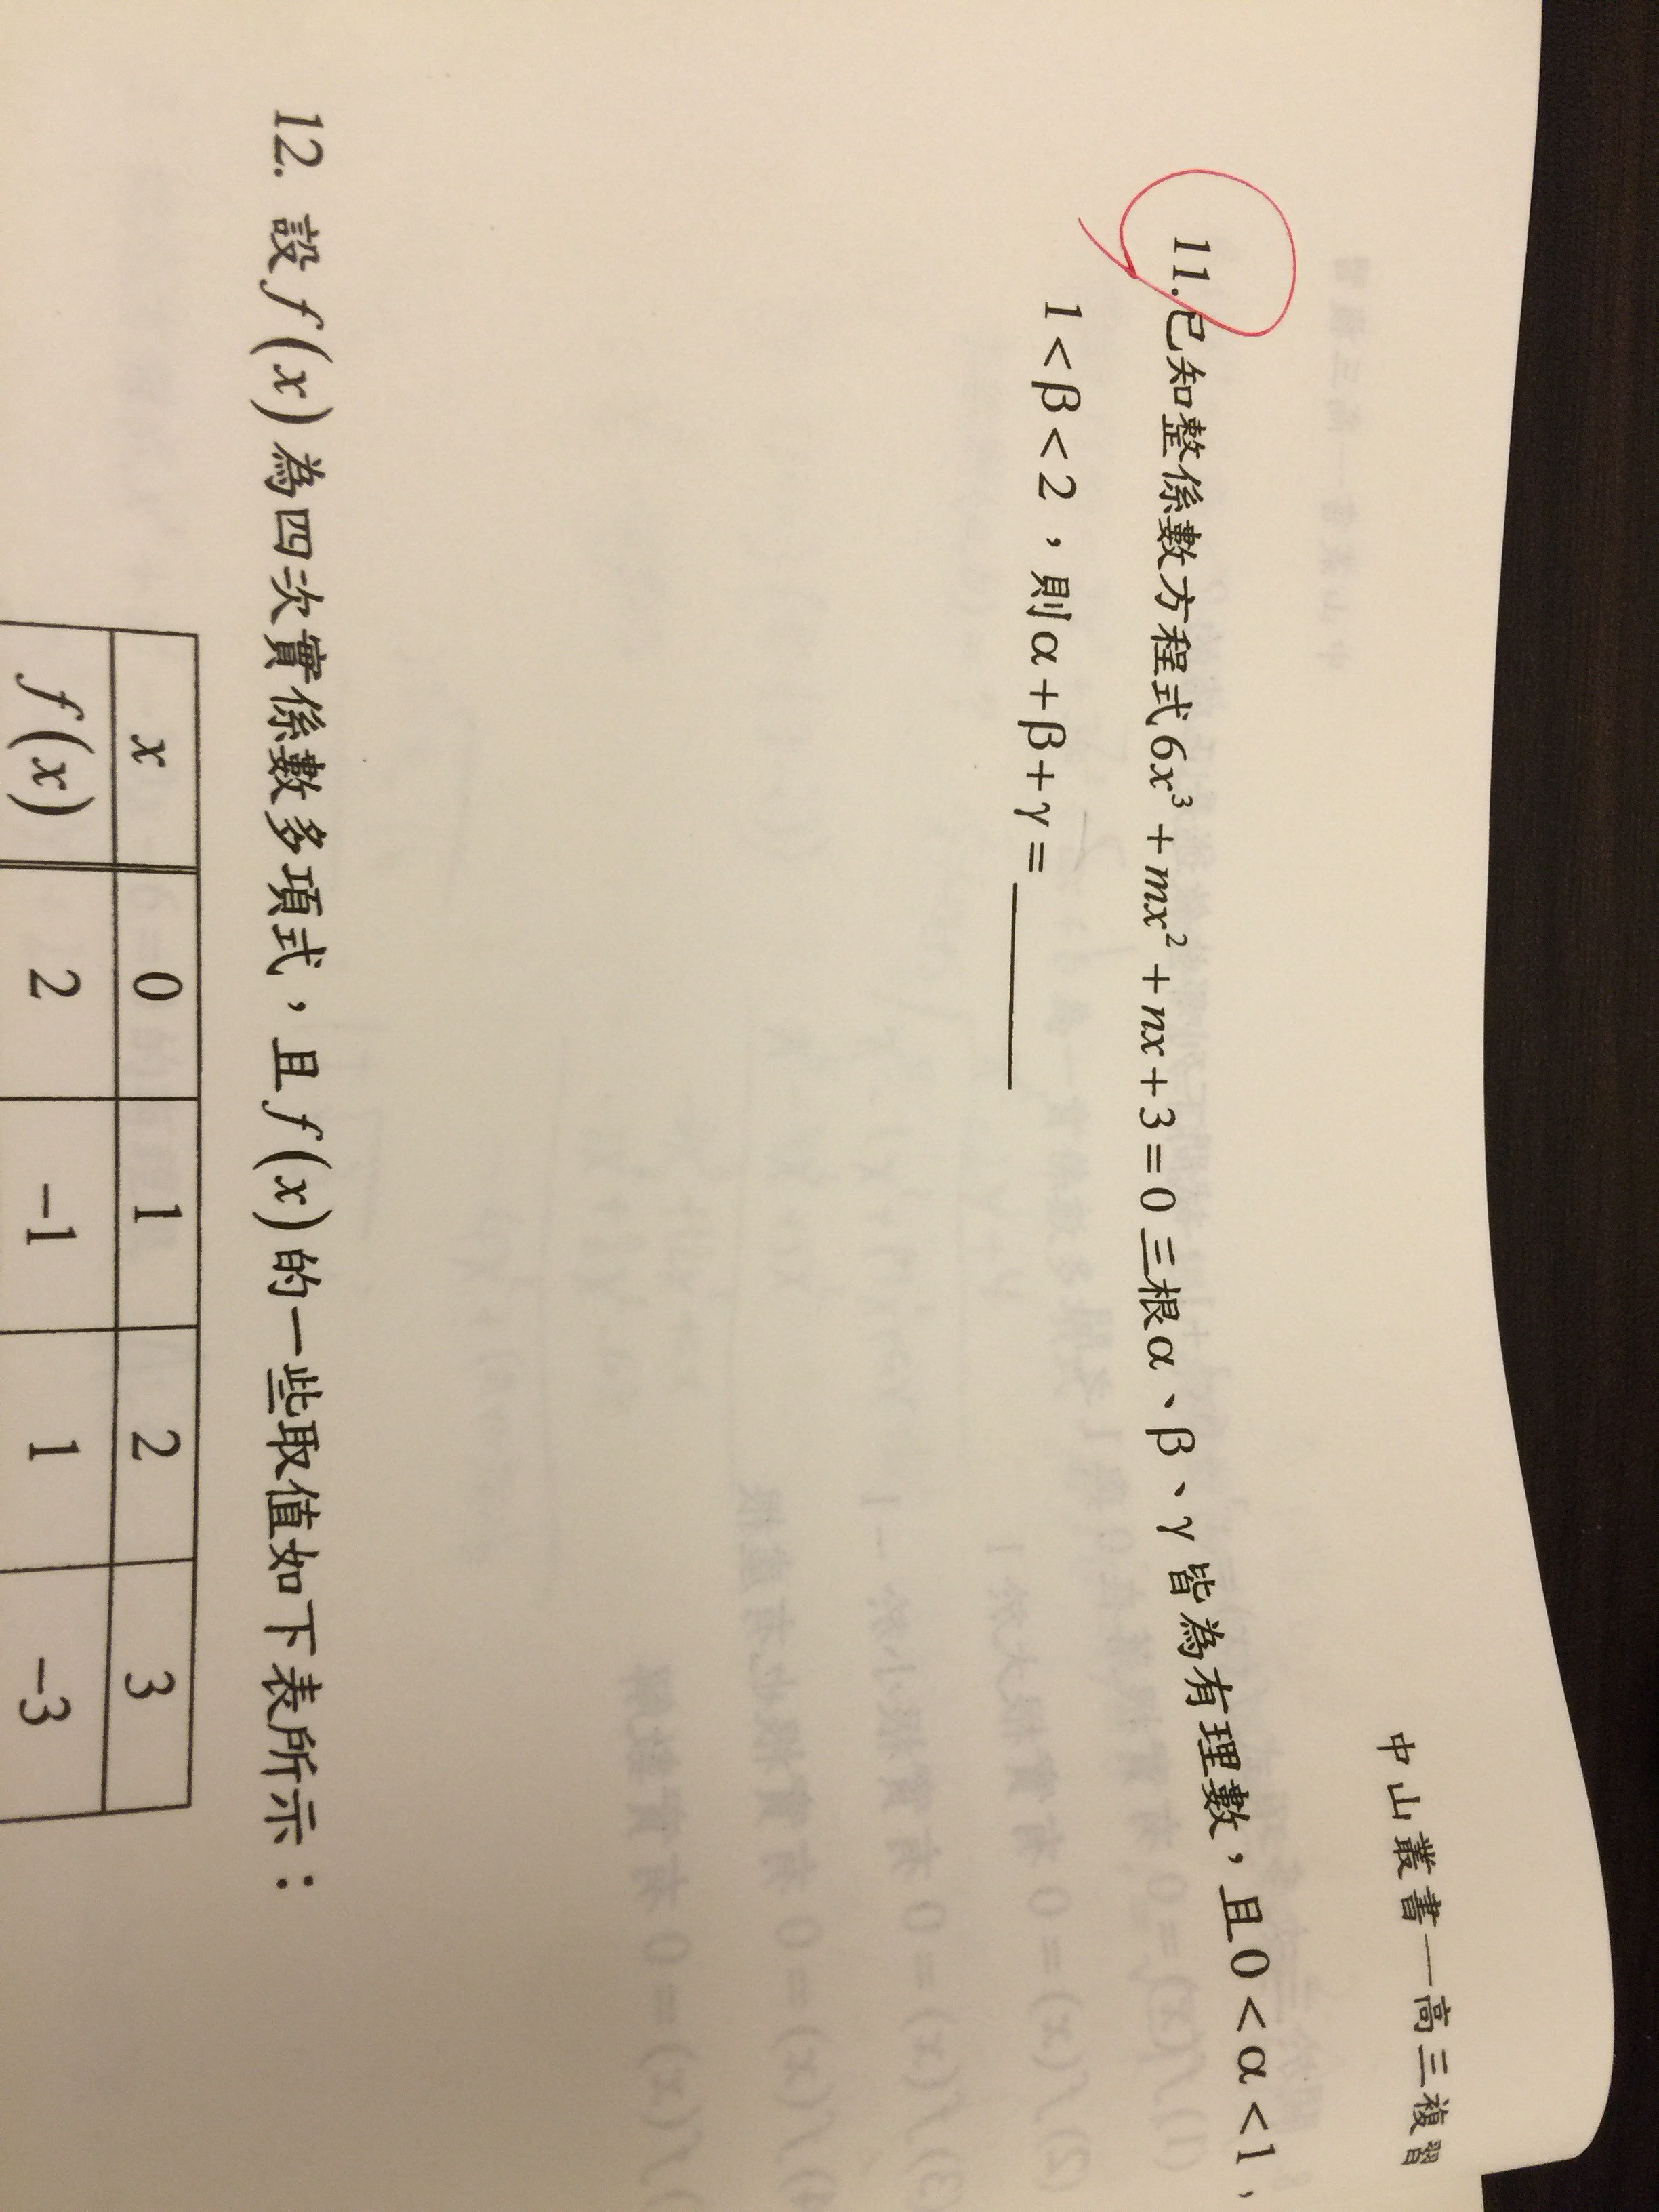 中山叢書—高三複習
11.已知整係數方程式6x³+mx²+nx+3=0三根α、β、γ皆為有理數,且0<α<1,
1<β<2,則α+β+γ=______
12. 設f(x)為四次實係數多項式,且f(x)的一些取值如下表所示:
x 0 1 2 3
f(x) 2 −1 1 −3